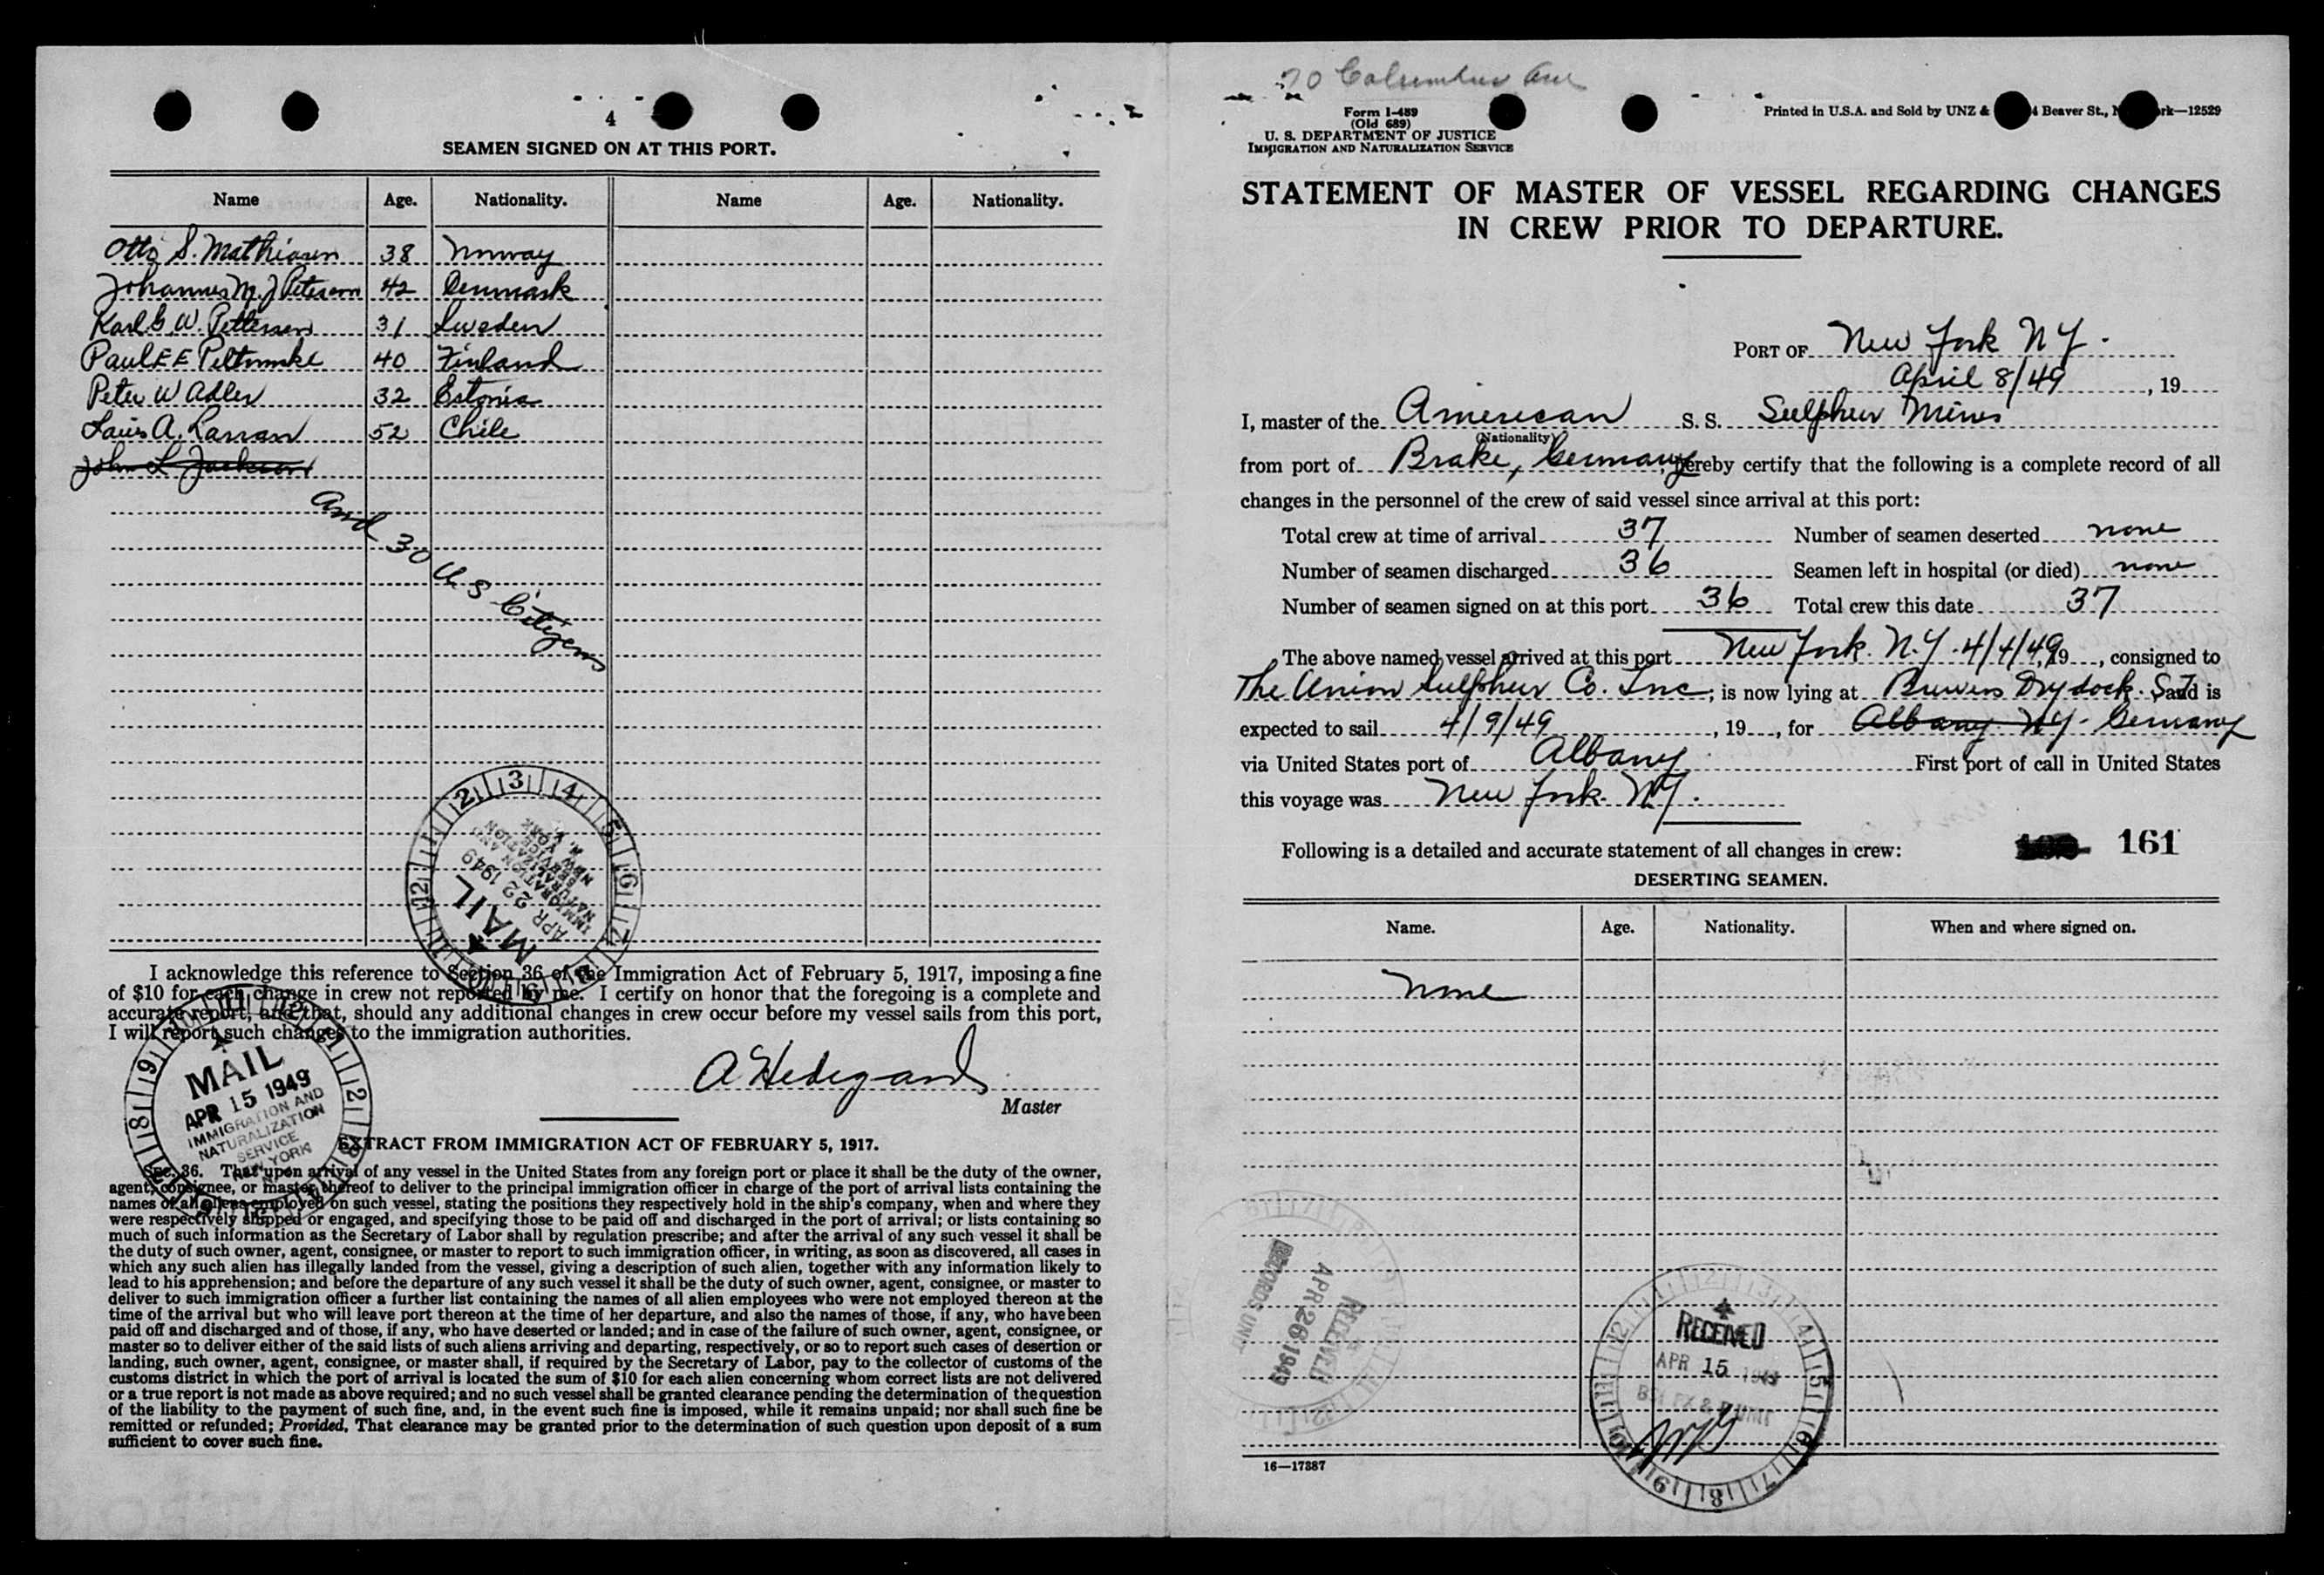 4
SEAMEN SIGNED ON AT THIS PORT.
Name Age. Nationality. Name Age. Nationality.
Otto S. Mathiasen 38 Norway
Johannes M. J Petersen 42 Denmark
Karl G W. Pettersen 31 Sweden
Paul E E 40 Finland
Peter W Adler 32 Estonia
Luis A. Larran 52 Chile
John L Jackson
and 30 U S Citizens
3 4 5 6 7 8 9 10 11 12 1 2
MAIL
APR 22 1949
IMMIGRATION AND
NATURALIZATION
SERVICE
NEW YORK
N. Y.
I acknowledge this reference to Section 36 of the Immigration Act of February 5, 1917, imposing a fine
of $10 for each change in crew not reported by me. I certify on honor that the foregoing is a complete and
accurate report, and that, should any additional changes in crew occur before my vessel sails from this port,
I will report such changes to the immigration authorities.
A Hedegaard
Master
MAIL
APR 15 1949
IMMIGRATION AND
NATURALIZATION
SERVICE
NEW YORK
EXTRACT FROM IMMIGRATION ACT OF FEBRUARY 5, 1917.
Sec. 36. That upon arrival of any vessel in the United States from any foreign port or place it shall be the duty of the owner,
agent, consignee, or master thereof to deliver to the principal immigration officer in charge of the port of arrival lists containing the
names of all aliens employed on such vessel, stating the positions they respectively hold in the ship's company, when and where they
were respectively shipped or engaged, and specifying those to be paid off and discharged in the port of arrival; or lists containing so
much of such information as the Secretary of Labor shall by regulation prescribe; and after the arrival of any such vessel it shall be
the duty of such owner, agent, consignee, or master to report to such immigration officer, in writing, as soon as discovered, all cases in
which any such alien has illegally landed from the vessel, giving a description of such alien, together with any information likely to
lead to his apprehension; and before the departure of any such vessel it shall be the duty of such owner, agent, consignee, or master to
deliver to such immigration officer a further list containing the names of all alien employees who were not employed thereon at the
time of the arrival but who will leave port thereon at the time of her departure, and also the names of those, if any, who have been
paid off and discharged and of those, if any, who have deserted or landed; and in case of the failure of such owner, agent, consignee, or
master so to deliver either of the said lists of such aliens arriving and departing, respectively, or so to report such cases of desertion or
landing, such owner, agent, consignee, or master shall, if required by the Secretary of Labor, pay to the collector of customs of the
customs district in which the port of arrival is located the sum of $10 for each alien concerning whom correct lists are not delivered
or a true report is not made as above required; and no such vessel shall be granted clearance pending the determination of the question
of the liability to the payment of such fine, and, in the event such fine is imposed, while it remains unpaid; nor shall such fine be
remitted or refunded; Provided, That clearance may be granted prior to the determination of such question upon deposit of a sum
sufficient to cover such fine.
70 Columbus Ave
Form I-489
(Old 689)
U. S. DEPARTMENT OF JUSTICE
IMMIGRATION AND NATURALIZATION SERVICE
Printed in U.S.A. and Sold by UNZ & 4 Beaver St., N rk—12529
STATEMENT OF MASTER OF VESSEL REGARDING CHANGES
IN CREW PRIOR TO DEPARTURE.
PORT OF New York N Y.
April 8/49, 19
I, master of the American S. S. Sulphur Mines
(Nationality)
from port of Brake, Germany, hereby certify that the following is a complete record of all
changes in the personnel of the crew of said vessel since arrival at this port:
Total crew at time of arrival 37 Number of seamen deserted none
Number of seamen discharged 36 Seamen left in hospital (or died) none
Number of seamen signed on at this port 36 Total crew this date 37
The above named vessel arrived at this port New York. N.Y. 4/4/49, 19, consigned to
The Union Sulphur Co. Inc; is now lying at Brewers Drydock. S.I and is
expected to sail 4/9/49, 19, for Albany NY - Germany
via United States port of Albany First port of call in United States
this voyage was New York. NY.
Following is a detailed and accurate statement of all changes in crew: 161
DESERTING SEAMEN.
Name. Age. Nationality. When and where signed on.
None
RECEIVED
APR 26 1949
RECORDS UNIT
RECEIVED
APR 15 1949
16—17387